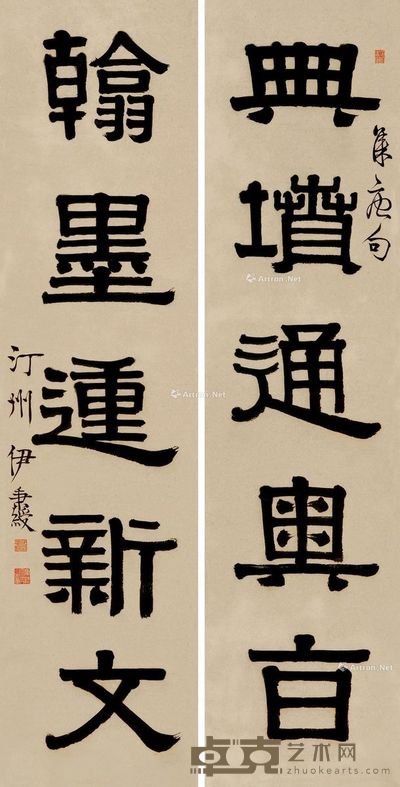 典墳通奧旨
集唐句
翰墨運新文
汀州伊秉綬
Artron.Net
Artron.Net
Artron.Net
Artron.Net
卓克艺术网
zhuokearts.com